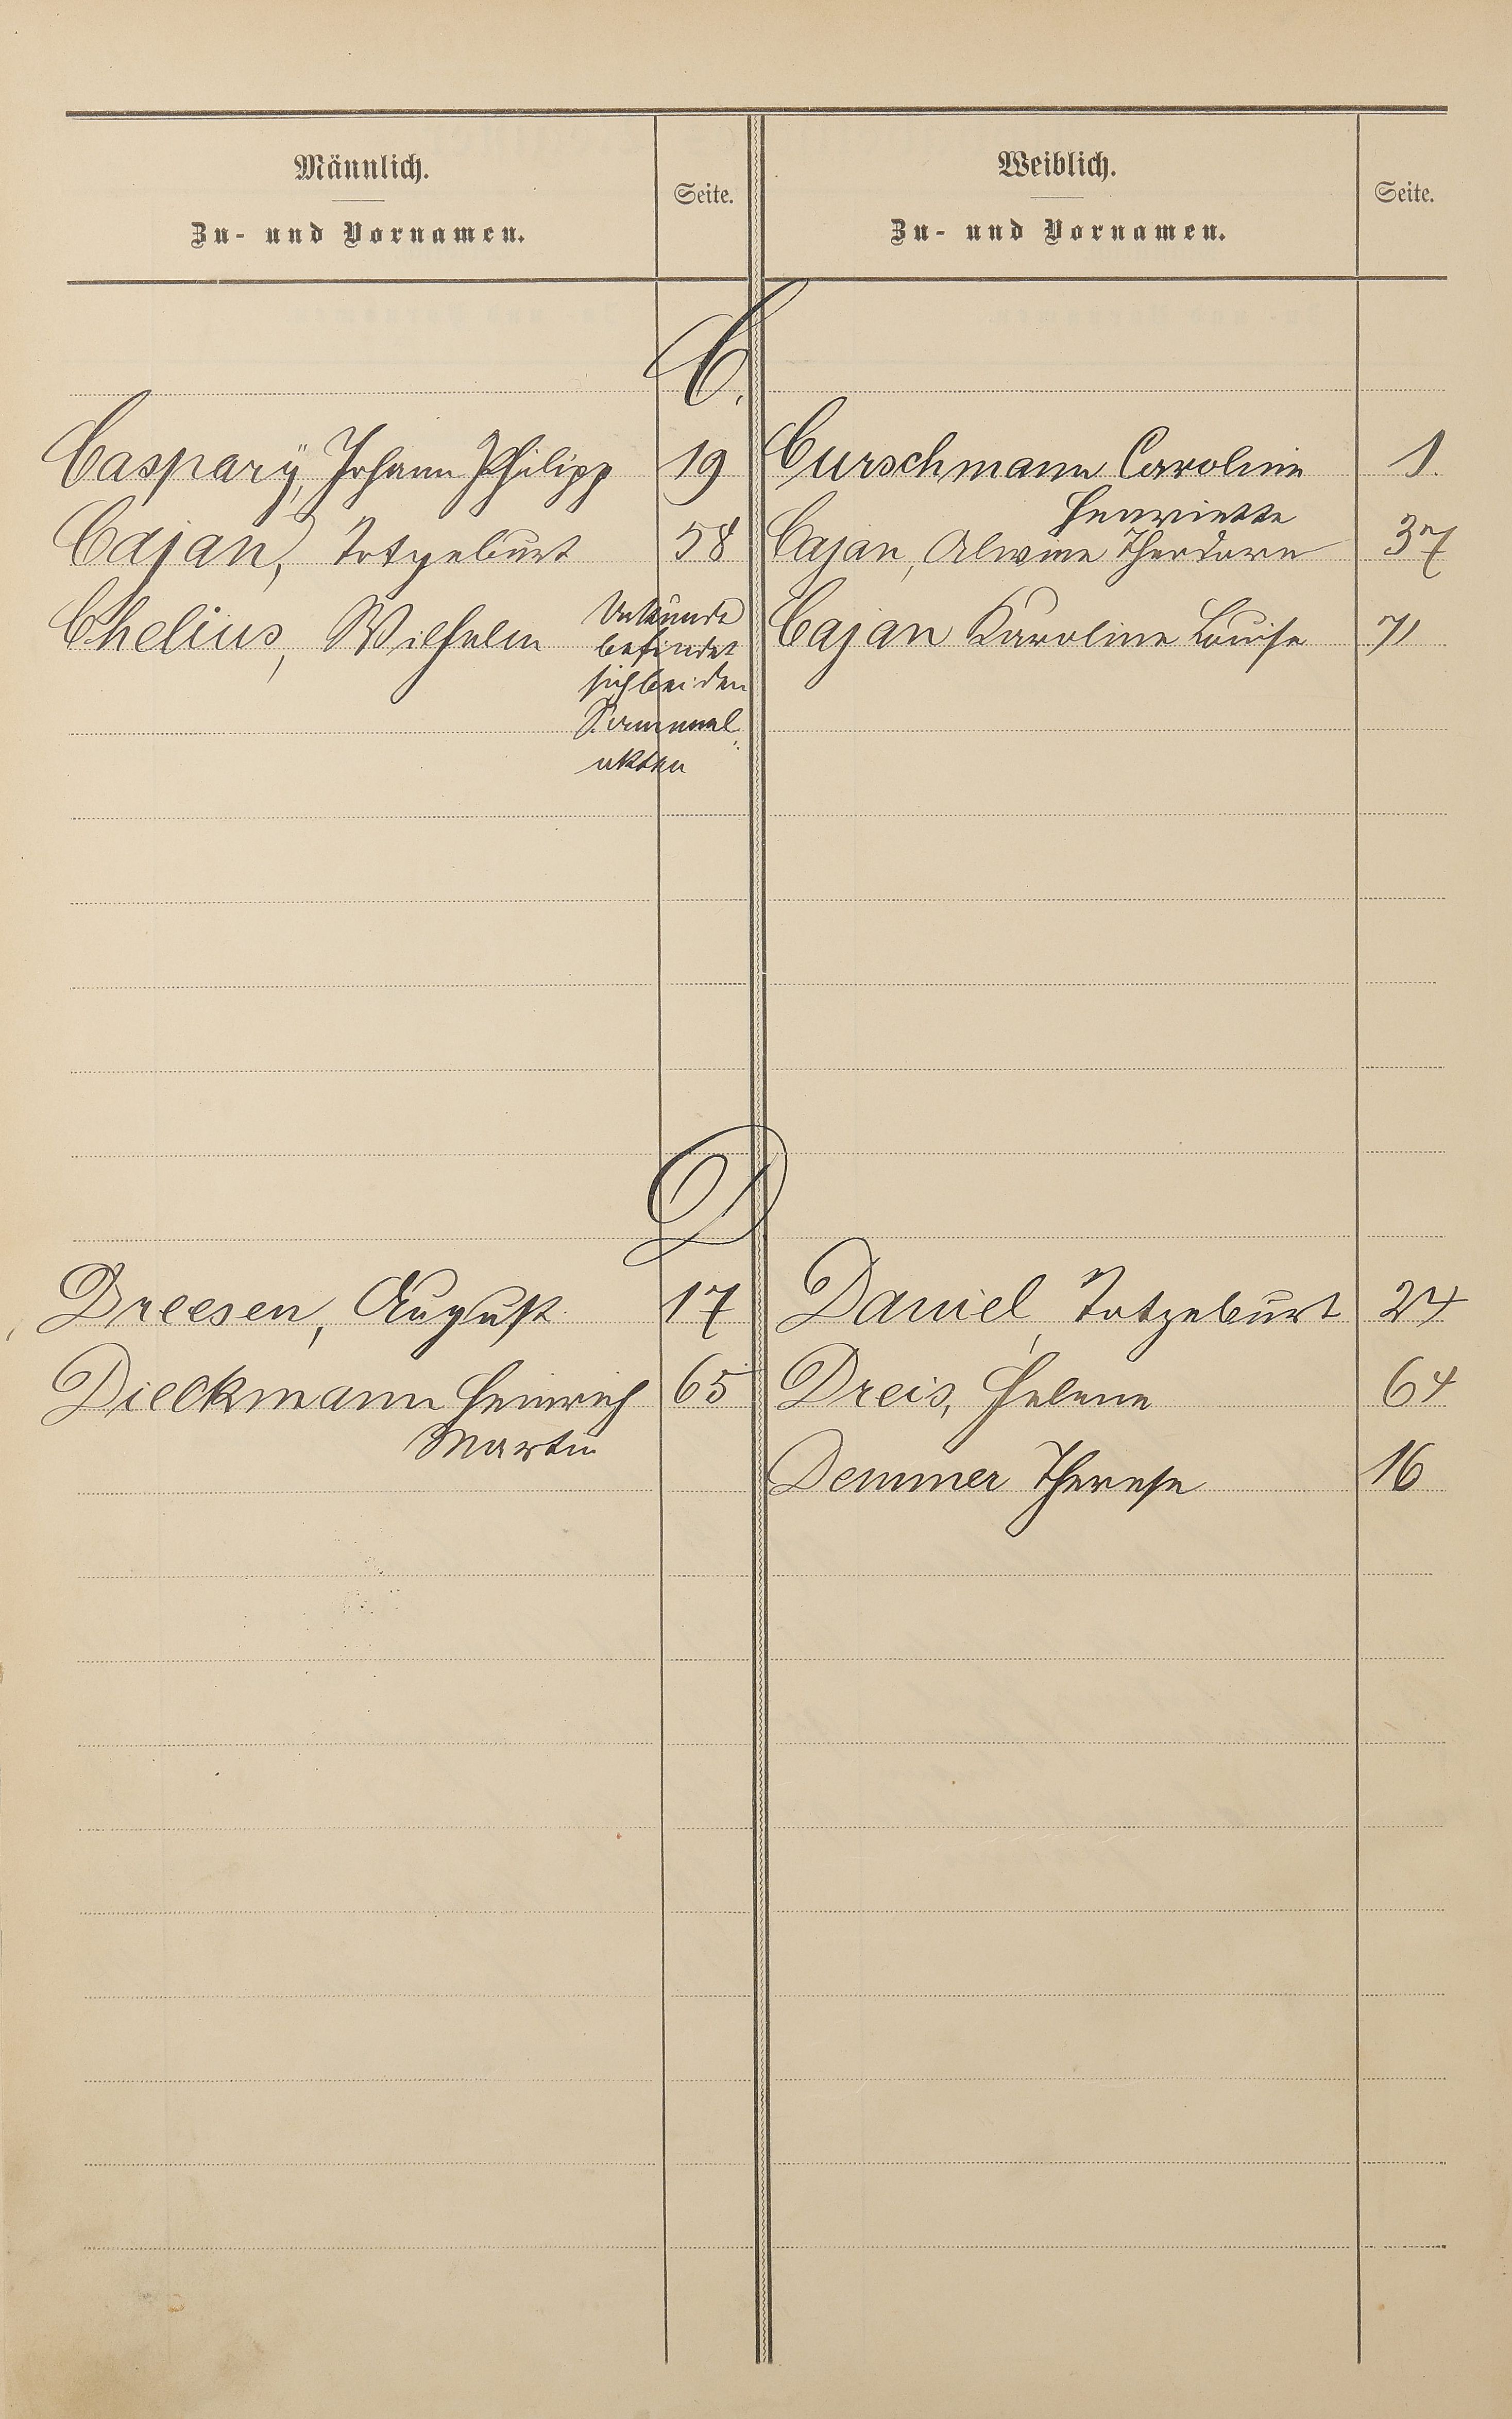 Männlich.
Zu- und Vornamen.
Seite.
Weiblich.
Zu- und Vornamen.
Seite.
C.
Casparÿ, Johann Philipp 19
Curschmann Caroline 1.
Henriette
Cajan, Totgeburt 58
Cajan, Alwine Theodore 37
Chelius, Wilhelm
Urkunde
befindet
sich bei den
akten
Cajan Karoline Louise 71
D
Dreesen, August 17
Daniel, Totgeburt 24
Dieckmann Heinrich 65
Martin
Dreis, Helene 64
Demmer Therese 16